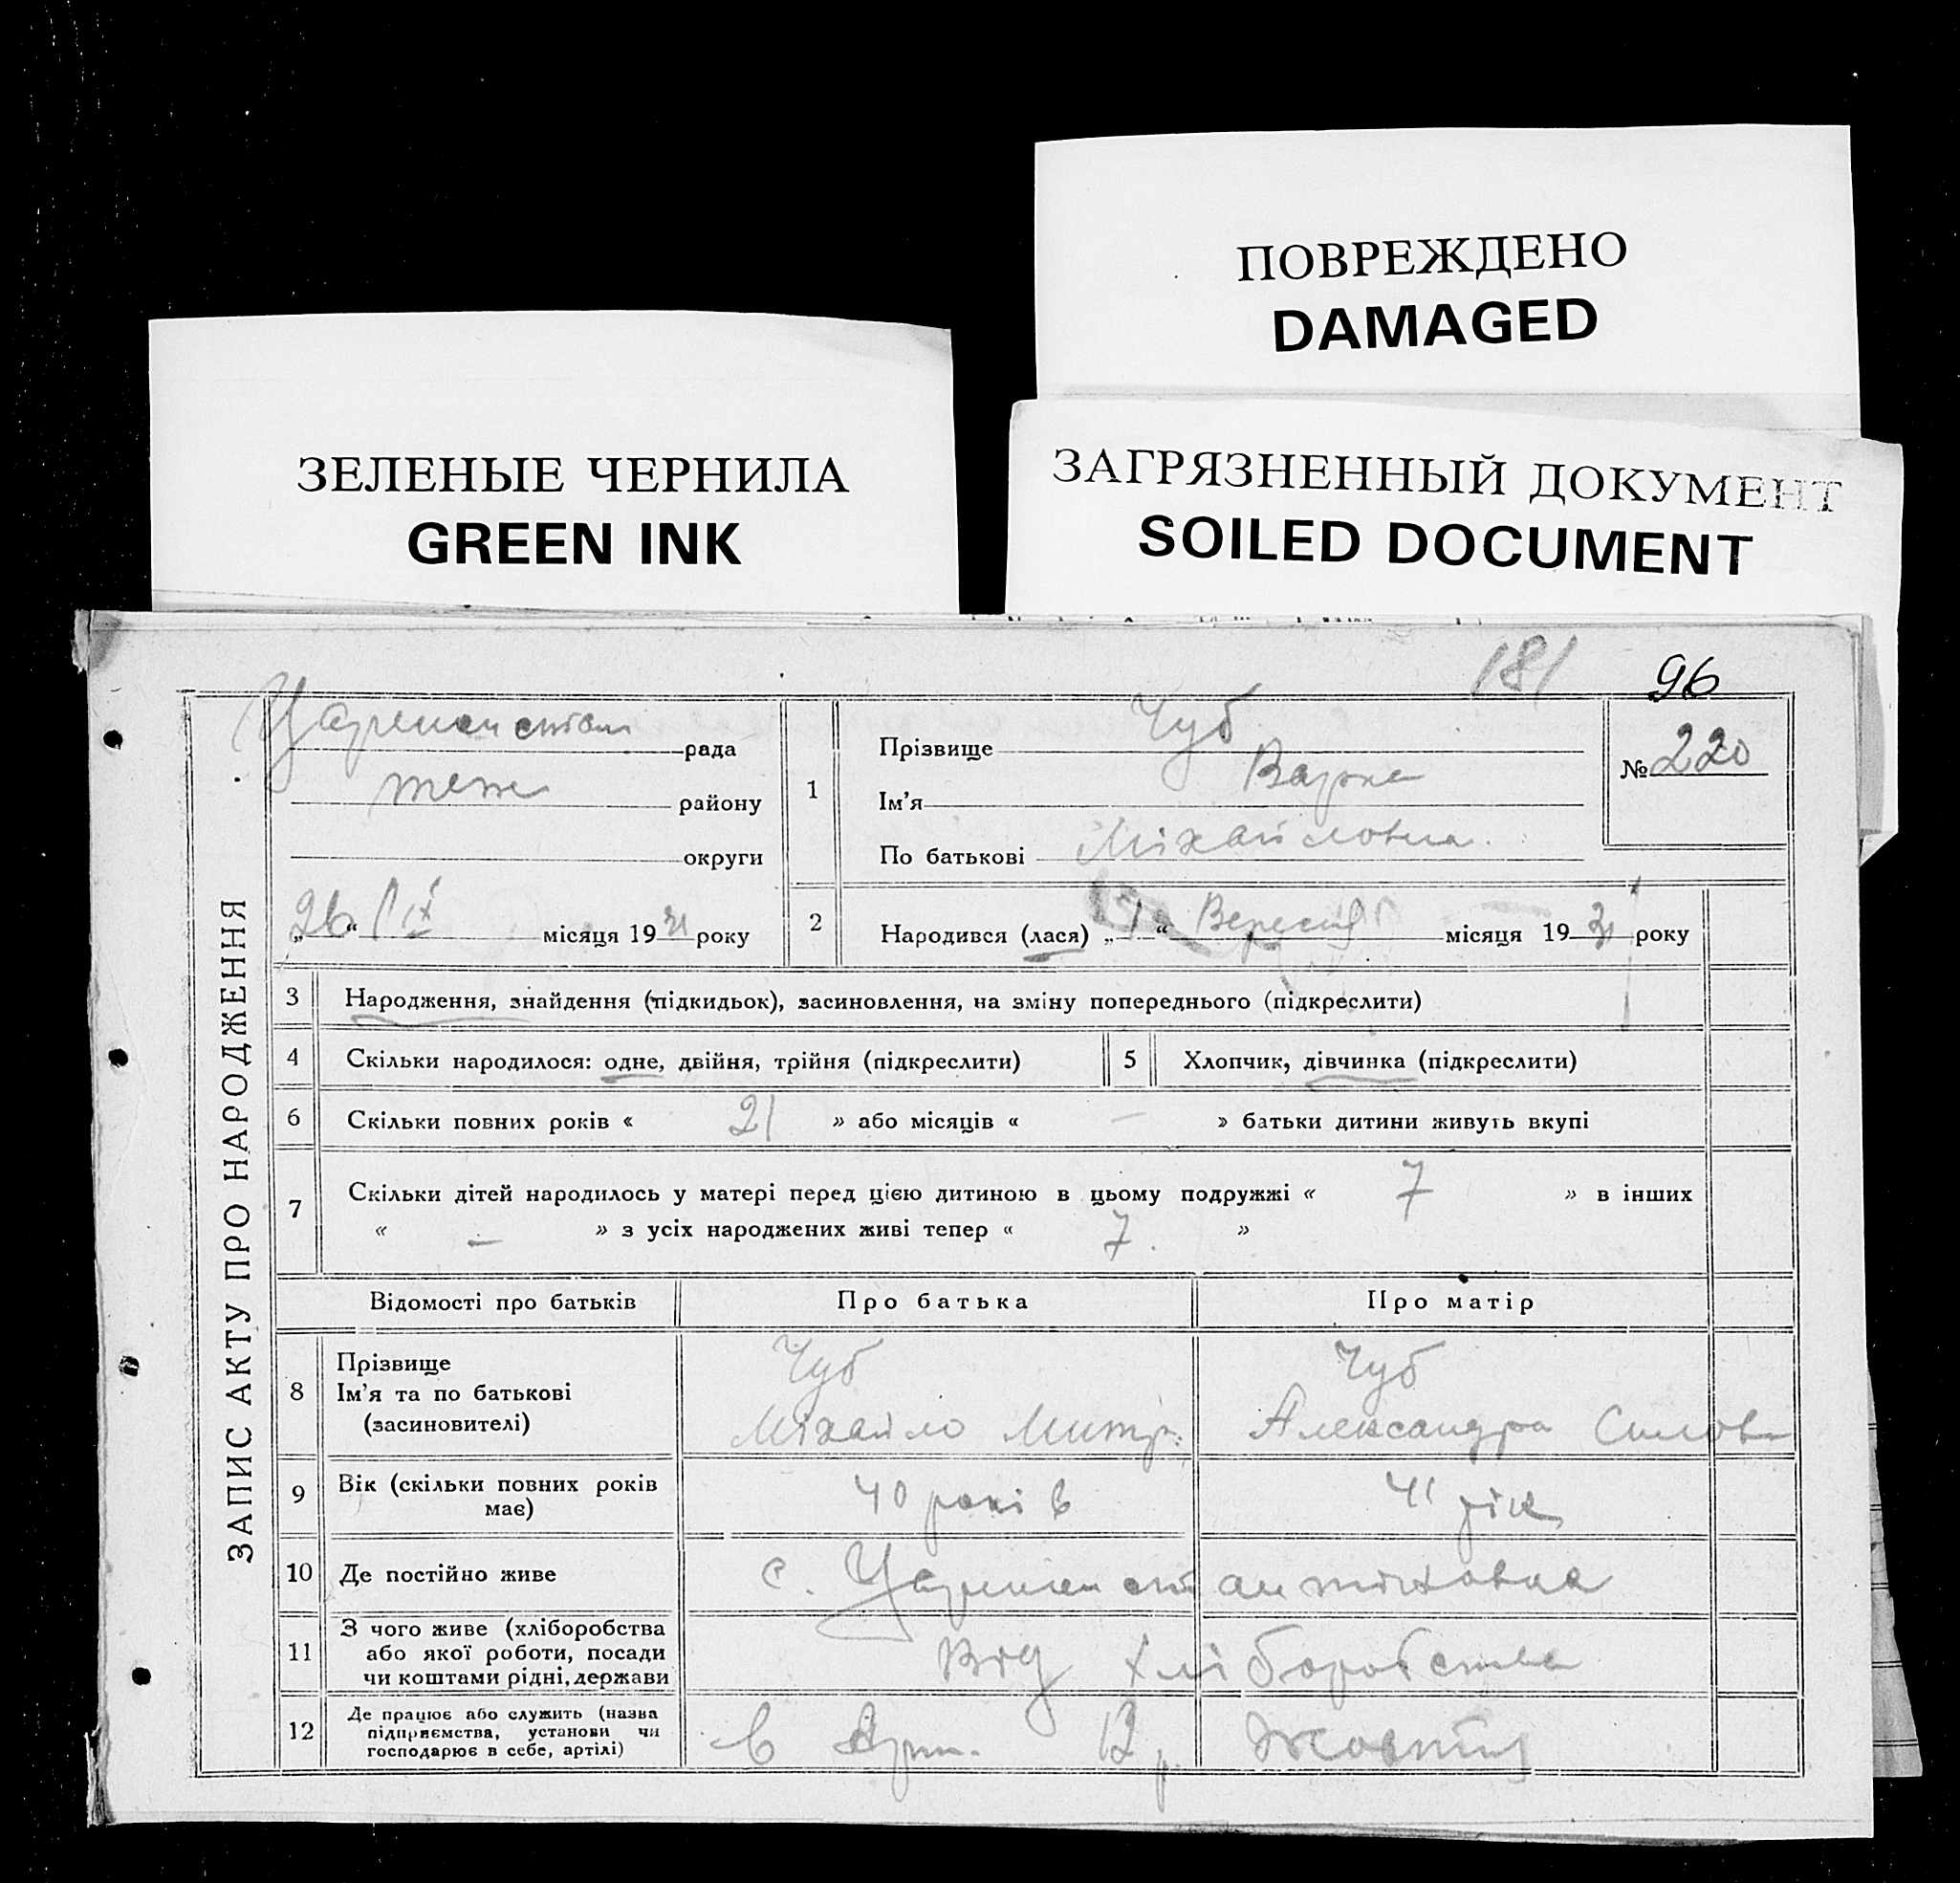 ПОВРЕЖДЕНО
DAMAGED
ЗЕЛЕНЫЕ ЧЕРНИЛА
GREEN INK
ЗАГРЯЗНЕННЫЙ ДОКУМЕНТ
SOILED DOCUMENT
181
96
ЗАПИС АКТУ ПРО НАРОДЖЕННЯ
рада
району
округи
„26“ IX місяця 1931 року
1
Прізвище Чуб
Ім'я Варка
По батькові Міхайловна
№ 220
2 Народився (лася) „ “ Вересня місяця 1931 року
3 Народження, знайдення (підкидьок), засиновлення, на зміну попереднього (підкреслити)
4 Скільки народилося: одне, двійня, трійня (підкреслити) 5 Хлопчик, дівчинка (підкреслити)
6 Скільки повних років « 21 » або місяців « — » батьки дитини живуть вкупі
7 Скільки дітей народилось у матері перед цією дитиною в цьому подружжі « 7 » в інших
« — » з усіх народжених живі тепер « 7. »
Відомості про батьків Про батька Про матір
8 Прізвище
Ім'я та по батькові
(засиновителі)
Чуб
Міхайло Митр.
Чуб
Александра
9 Вік (скільки повних років
має)
40 років
41 рік
10 Де постійно живе
с. Царикон стантіновка
11 З чого живе (хліборобства
або якої роботи, посади
чи коштами рідні, держави
Від хліборобства
12 Де працює або служить (назва
підприємства, установи чи
господарює в себе, артілі)
в Жовтня